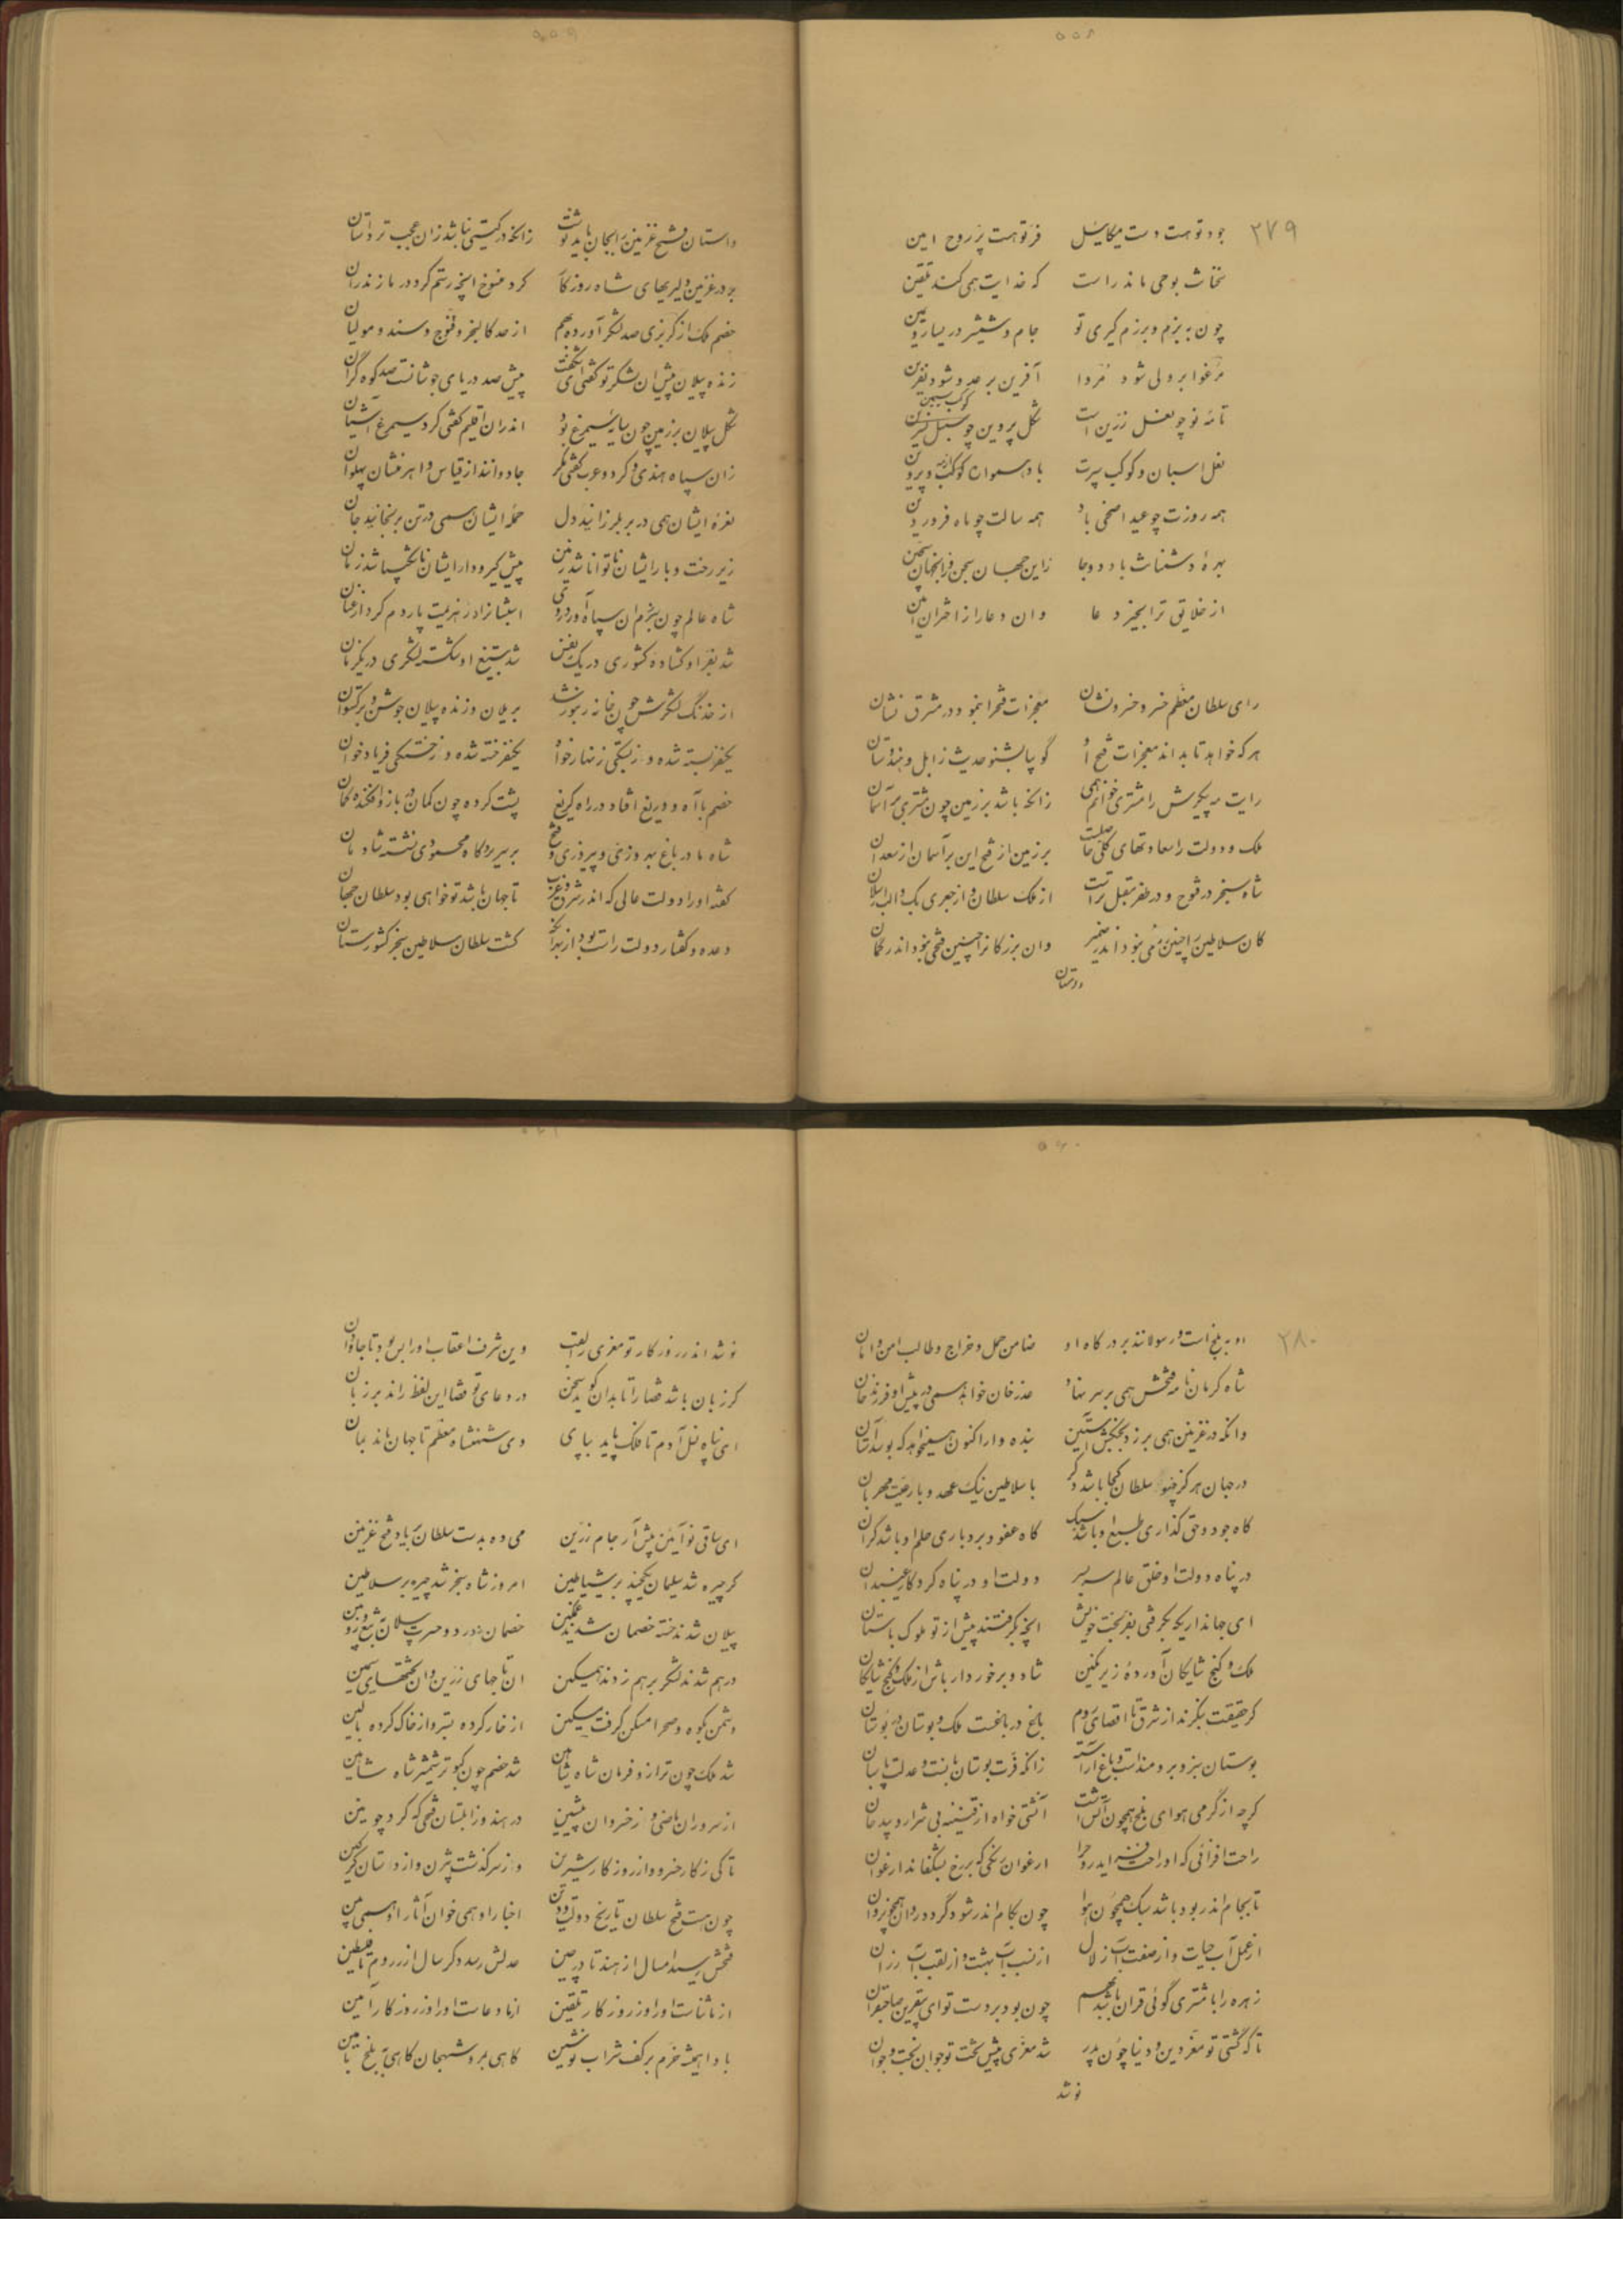 ۵۵۸
۲۷۹
جود تو هست دست میکائیل فر تو هست پر روح امین
سخات بوحی ماند راست که خدایت همی کند تلقین
چون به بزم و برزم گیری تو جام و شمشیر در یسار و یمین
مرغوا بر ولی شود مروا آفرین بر عدو شود نفرین
تا مه نو چو نعل زرین است شکل پروین چو کوکب سیمین
نعل اسبان و کوکب سپرت باد بر آسمان کوکب و پروین
همه روزت چو عید اضحی باد همه سالت چو ماه فروردین
بهرهٔ دشمنات باد دو جا زاین جهان سجن وز آنجهان سجین
از خلایق ترا بخیر دعا وان دعا را از اختران آمین
رای سلطان معظم خسرو خسرو نشان معجزات فتح را بنمود در مشرق نشان
هر که خواهد تا بداند معجزات فتح او گو بیا بشنو حدیث زابل و هندوستان
رایت مه پیکرش را مشتری خوانم همی زانکه باشد بر زمین چون مشتری بر آسمان
ملک و دولت را سعادتهای کلی حاصلست بر زمین از فتح این بر آسمان از سعد آن
شاه سنجر در فتوح و در ظفر مقبل تر است از ملک سلطان و از جغری بک و الب ارسلان
کان سلاطین را چنین رزمی نبود اندر ضمیر وان بزرگان را چنین فتحی نبود اندر گمان
داستان
۵۵۹
داستان فتح غزنین را بجان باید نوشت زانکه در گیتی نباشد زان عجب تر داستان
بر در غزنین دلیریهای شاه روزگار کرد منسوخ آنچه رستم کرد در مازندران
خصم ملک از گربزی صد لشکر آورده بهم از حد کالنجر و قنوج و سند و مولتان
زنده پیلان پیش آن لشکر تو گفتی ای شگفت پیش صد دریای جوشانست صد کوه گران
شکل پیلان بر زمین چون سایهٔ سیمرغ بود اندران اقلیم گفتی کرد سیمرغ آشیان
زان سپاه هندی و کرد و عرب گفتی مگر جادوانند از قیاس و اهرمنشان پهلوان
نعرهٔ ایشان همی در بر بلرزانید دل حملهٔ ایشان همی در تن برنجانید جان
زیر رخت و بار ایشان ناتوانا شد زمین پیش گیرودار ایشان ناشکیبا شد زمان
شاه عالم چون بزم آن سپاه آورد روی ایشانرا در هزیمت پاردم کرد از عنان
شد بفر او گشاده کشوری در یک نفس شد بتیغ او شکسته لشکری در یکزمان
از خدنگ لشکرش چون خانه زنبور شد بر یلان و زنده پیلان جوشن و برگستوان
یکنفر بسته شده وز بستگی زنهار خواه یکنفر خسته شده وز خستگی فریاد خوان
خصم با آه و دریغ افتاد در راه گریغ پشت کرده چون کمان وز بازو افکنده کمان
شاه ما در باغ بهروزی و پیروزی و فتح بر سریر و گاه محمودی نشسته شادمان
گفته او را دولت عالی که اندر شرق و غرب تا جهان باشد تو خواهی بود سلطان جهان
وعده و گفتار دولت راست بود از بهر آنکه گشت سلطان سلاطین سنجر کشورستان
۵۶۰
۲۸۰
او به بلخ است و رسولانند بر درگاه او ضامن حمل و خراج و طالب امن و امان
شاه کرمان نامه فتحش همی بر سر نهاد عذر خان خواهد همی در پیش او فرزند خان
وانکه در غزنین همی بر زد بجنگش آستین بنده وار اکنون همیخواهد که بوسد آستان
در جهان هرگز چنو سلطان کجا باشد دگر با سلاطین نیک عهد و با رعیت مهربان
گاه جود و حق گذاری طبع او باشد سبک گاه عفو و بردباری حلم او باشد گران
در پناه دولت او خلق عالم سر بسر دولت او در پناه کردگار غیبدان
ای جهانداری که بگرفتی بفر بخت خویش آنچه بگرفتند پیش از تو ملوک باستان
ملک و گنج شایگان آوردهٔ زیر نگین شاد و برخوردار باش از ملک و گنج شایگان
گر حقیقت بنگرند از شرق تا اقصای روم بلخ در باغست ملک و بوستان در بوستان
بوستان سبز و برومند است و باغ آراسته زانکه فرت بوستان بانست و عدلت پاسبان
گرچه از گرمی هوای بلخ همچون آتش است آتشی خواه از قنینه بی شرار و بی دخان
راحت افزائی که او راحت فزاید روح را ارغوان رنگی که بر رخ بشکفاند ارغوان
تا بجام اندر بود باشد سبک همچون هوا چون بکام اندر شود گردد روان همچون روان
از عمل آب حیات و از صفت آب زلال از نسب آب بهشت و از لقب آب رزان
زهره را با مشتری گوئی قران باشد بهم چون بود بر دست تو ای بیقرین صاحبقران
تا که گشتی تو معز دین و دنیا چون پدر شد معزی پیش تخت تو جوان بخت و جوان
نو شد
۵۶۱
نو شد اندر روزگار تو معزی را لقب وین شرف اعقاب او را بس بود تا جاودان
گر زبان باشد قضا را تا بدان گوید سخن در دعای تو قضا این لفظ راند بر زبان
ای پناه نسل آدم تا فلک پاید بپای وی شهنشاه معظم تا جهان ماند بمان
ای ساقی نو آئین پیش آر جام زرین می ده بدست سلطان بر یاد فتح غزنین
گر چیره شد سلیمان یکچند بر شیاطین امروز شاه سنجر شد چیره بر سلاطین
پیلان شدند خسته خصمان شدند غمگین خصمان بدرد و حسرت پیلان بتیغ و زوبین
درهم شدند لشکر بر هم زدند همیکین آن تاجهای زرین وان تختهای سیمین
دشمن بکوه و صحرا مسکن گرفت مسکین از خار کرده بستر وز خاک کرده بالین
شد ملک چون ترازو فرمان شاه شاهین شد خصم چون کبوتر شمشیر شاه شاهین
از سروران ماضی و از خسروان پیشین در هند و زابلستان فتحی که کرد چونین
تا کی ز کار خسرو وز روزگار شیرین وز سرگذشت بیژن وز داستان گرگین
چون هست فتح سلطان تاریخ دولت و دین اخبار او همی خوان آثار او همی بین
فتحش رسید امسال از هند تا در چین عدلش رسد دگر سال از روم تا فلسطین
از ما ثناست او را وز روزگار تلقین از ما دعاست او را وز روزگار آمین
بادا همیشه خرم بر کف شراب نوشین گاهی بمرو شهجان گاهی به بلخ بامین